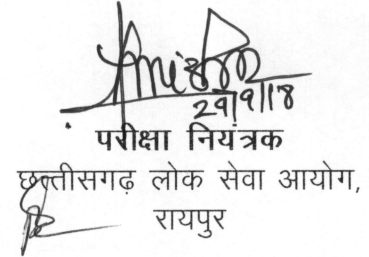 29/9/18
परीक्षा नियंत्रक
छत्तीसगढ़ लोक सेवा आयोग,
रायपुर